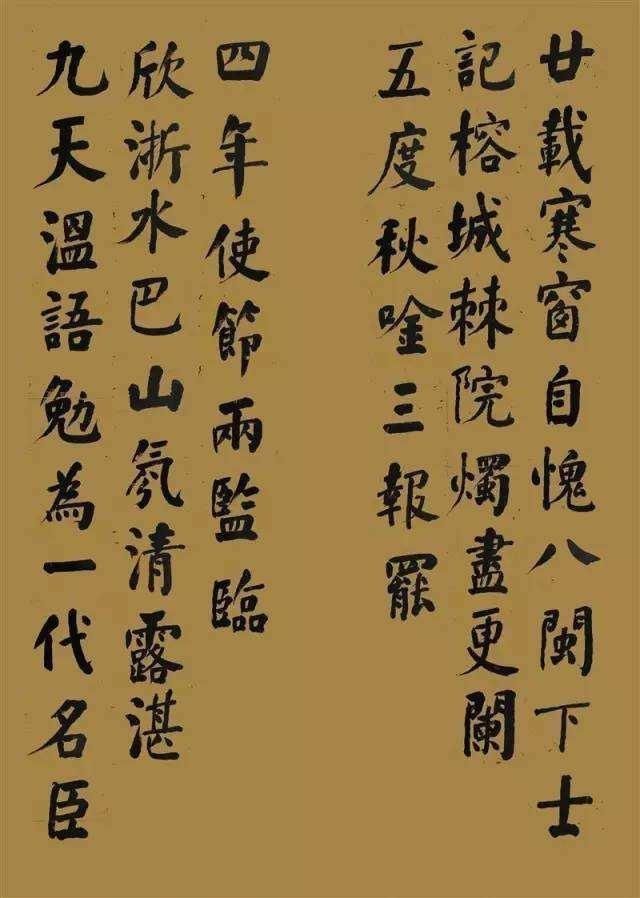 廿載寒窗自愧八閩下士
記榕城棘院燭盡更闌
五度秋唫三報罷
四年使節兩監臨
欣浙水巴山氛清露湛
九天溫語勉為一代名臣